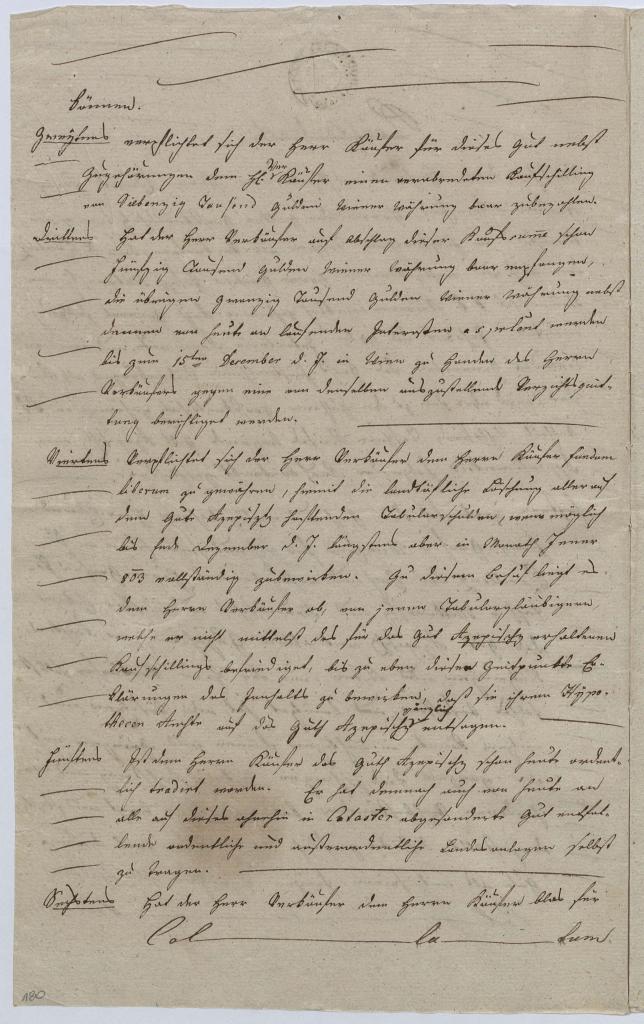 können.
Zweytens verpflichtet sich der Herr Käufer für dieses Gut nebst
Zugehörungen dem H: Käufer einen verabredeten Kaufschilling
von Siebenzig Tausend Gulden Wiener Währung baar zubezahlen.
Drittens Hat der Herr Verkäufer auf Abschlag dieser Kaufsume schon
fünfzig Tausend Gulden Wiener Währung baar empfangen,
die übrigen zwanzig Tausend Gulden Wiener Währung nebst
denen von heute an laufenden Interessen a 5 werden
bis zum 15ten December d. J. in Wien zu Handen des Herrn
Verkäufers gegen eine von denselben auszustellende Verzichtsquit-
tung berichtiget werden.
Viertens Verpflichtet sich der Herr Verkäufer dem Herrn Käufer fundum
liberum zu gewähren, hiemit die landtäfliche Löschung aller auf
dem Gute haftenden Tabularschulden, wenn möglich
bis Ende Dezember d. J. längstens aber im Monath Jener
803 vollständig zubewirken. Zu diesem Behuf liegt es
dem Herrn Verkäufer ob, von jenen Tabulargläubigern,
welche er nicht mittelst des für das Gut erhaltenen
Kaufschillings befriediget, bis zu eben dieser Zeitpunkte Er-
klärungen des Innhalts zu bewirken, daß sie ihrem Hypo-
thecen Rechte auf das Guth gänzlich entsagen.
Fünftens Ist dem Herrn Käufer das Guth schon heute ordent-
lich tradirt worden. Er hat demnach auch von heute an
alle auf dieses ohnehin in Cataster abgesonderte Gut entfal-
lende ordentliche und außerordentliche Landesanlagen selbst
zu tragen.
Sechstens Hat der Herr Verkäufer dem Herrn Käufer blos für
Col la tum.
180